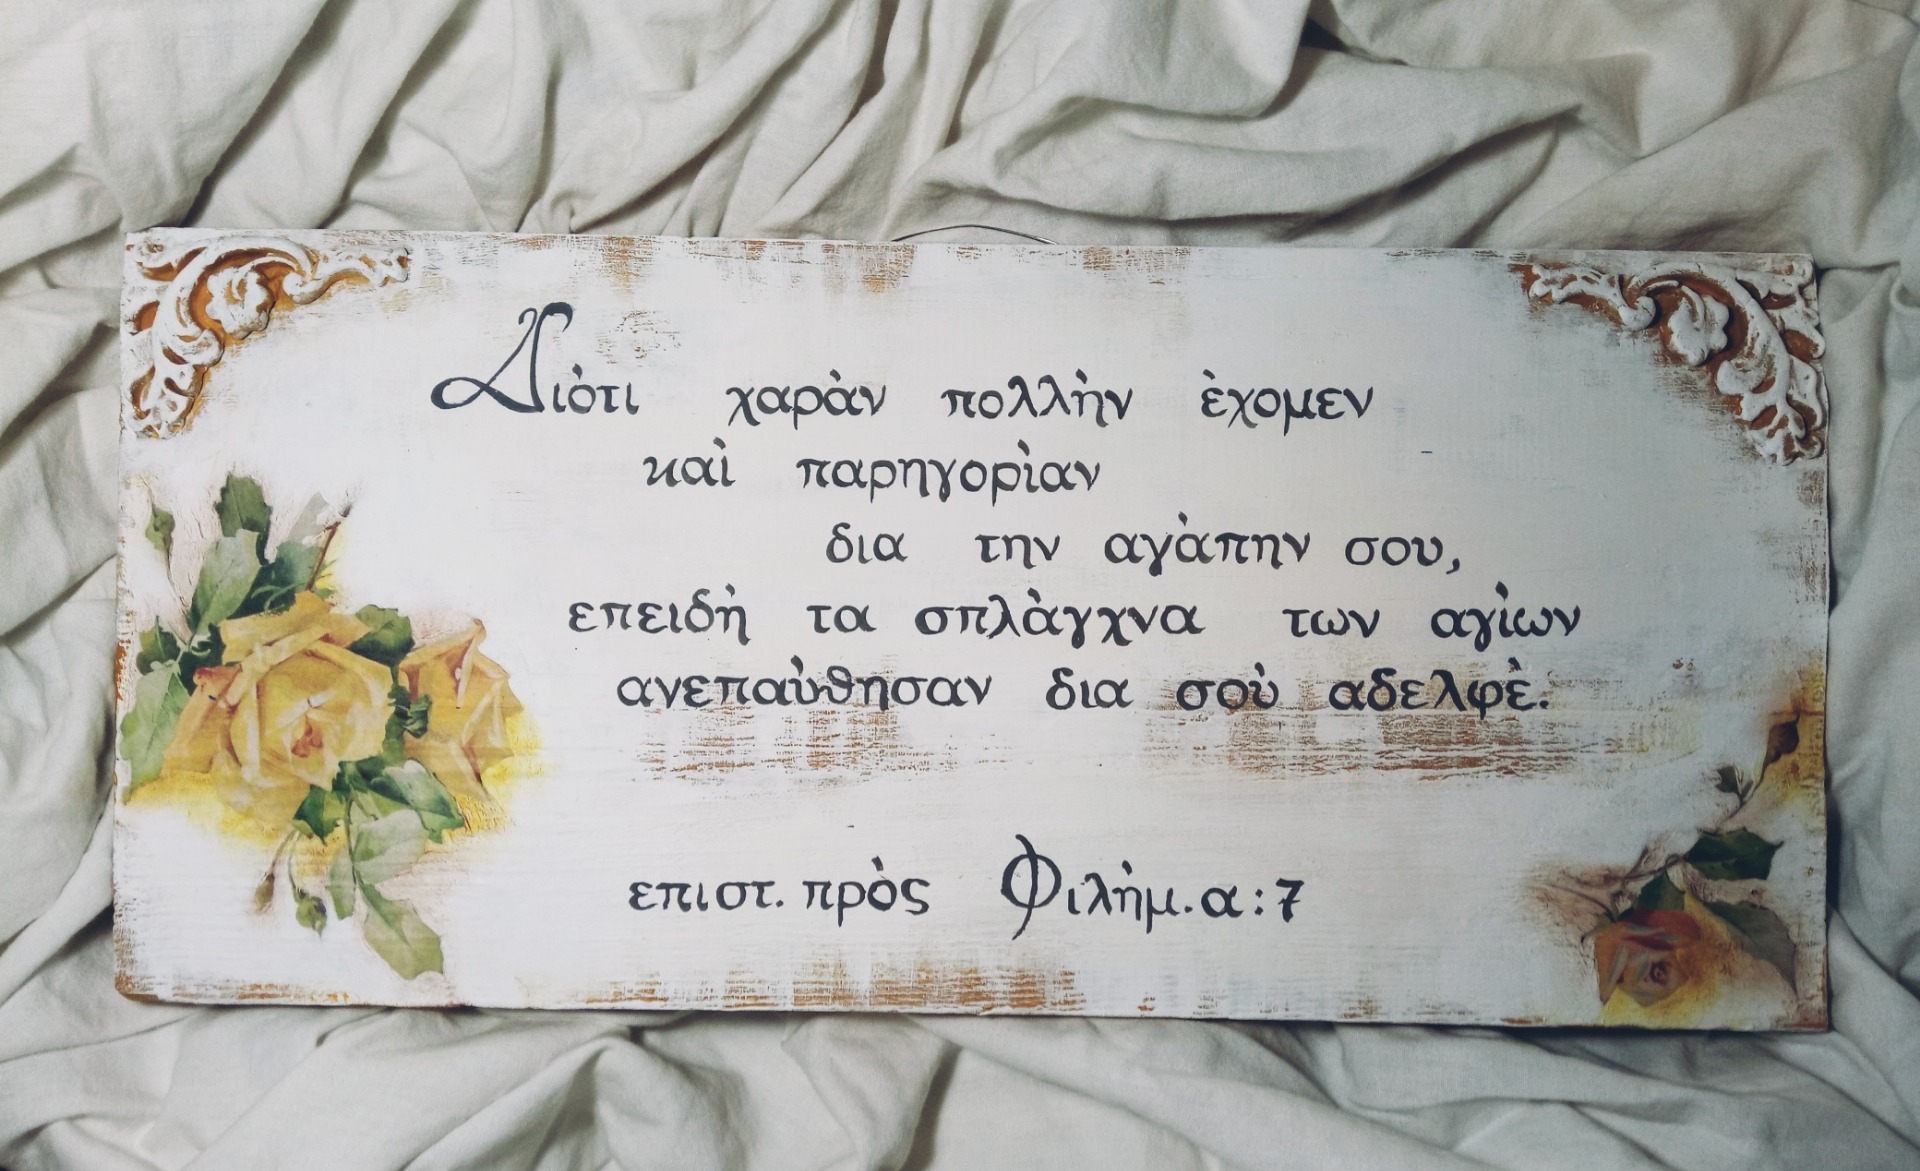 Διὸτι χαρὰν πολλὴν ὲχομεν
καὶ παρηγορὶαν
δια την αγὰπην σου,
επειδὴ τα σπλὰγχνα των αγὶων
ανεπαὺθησαν δια σοὺ αδελφὲ.
επιστ. πρὸς Φιλὴμ. α:7